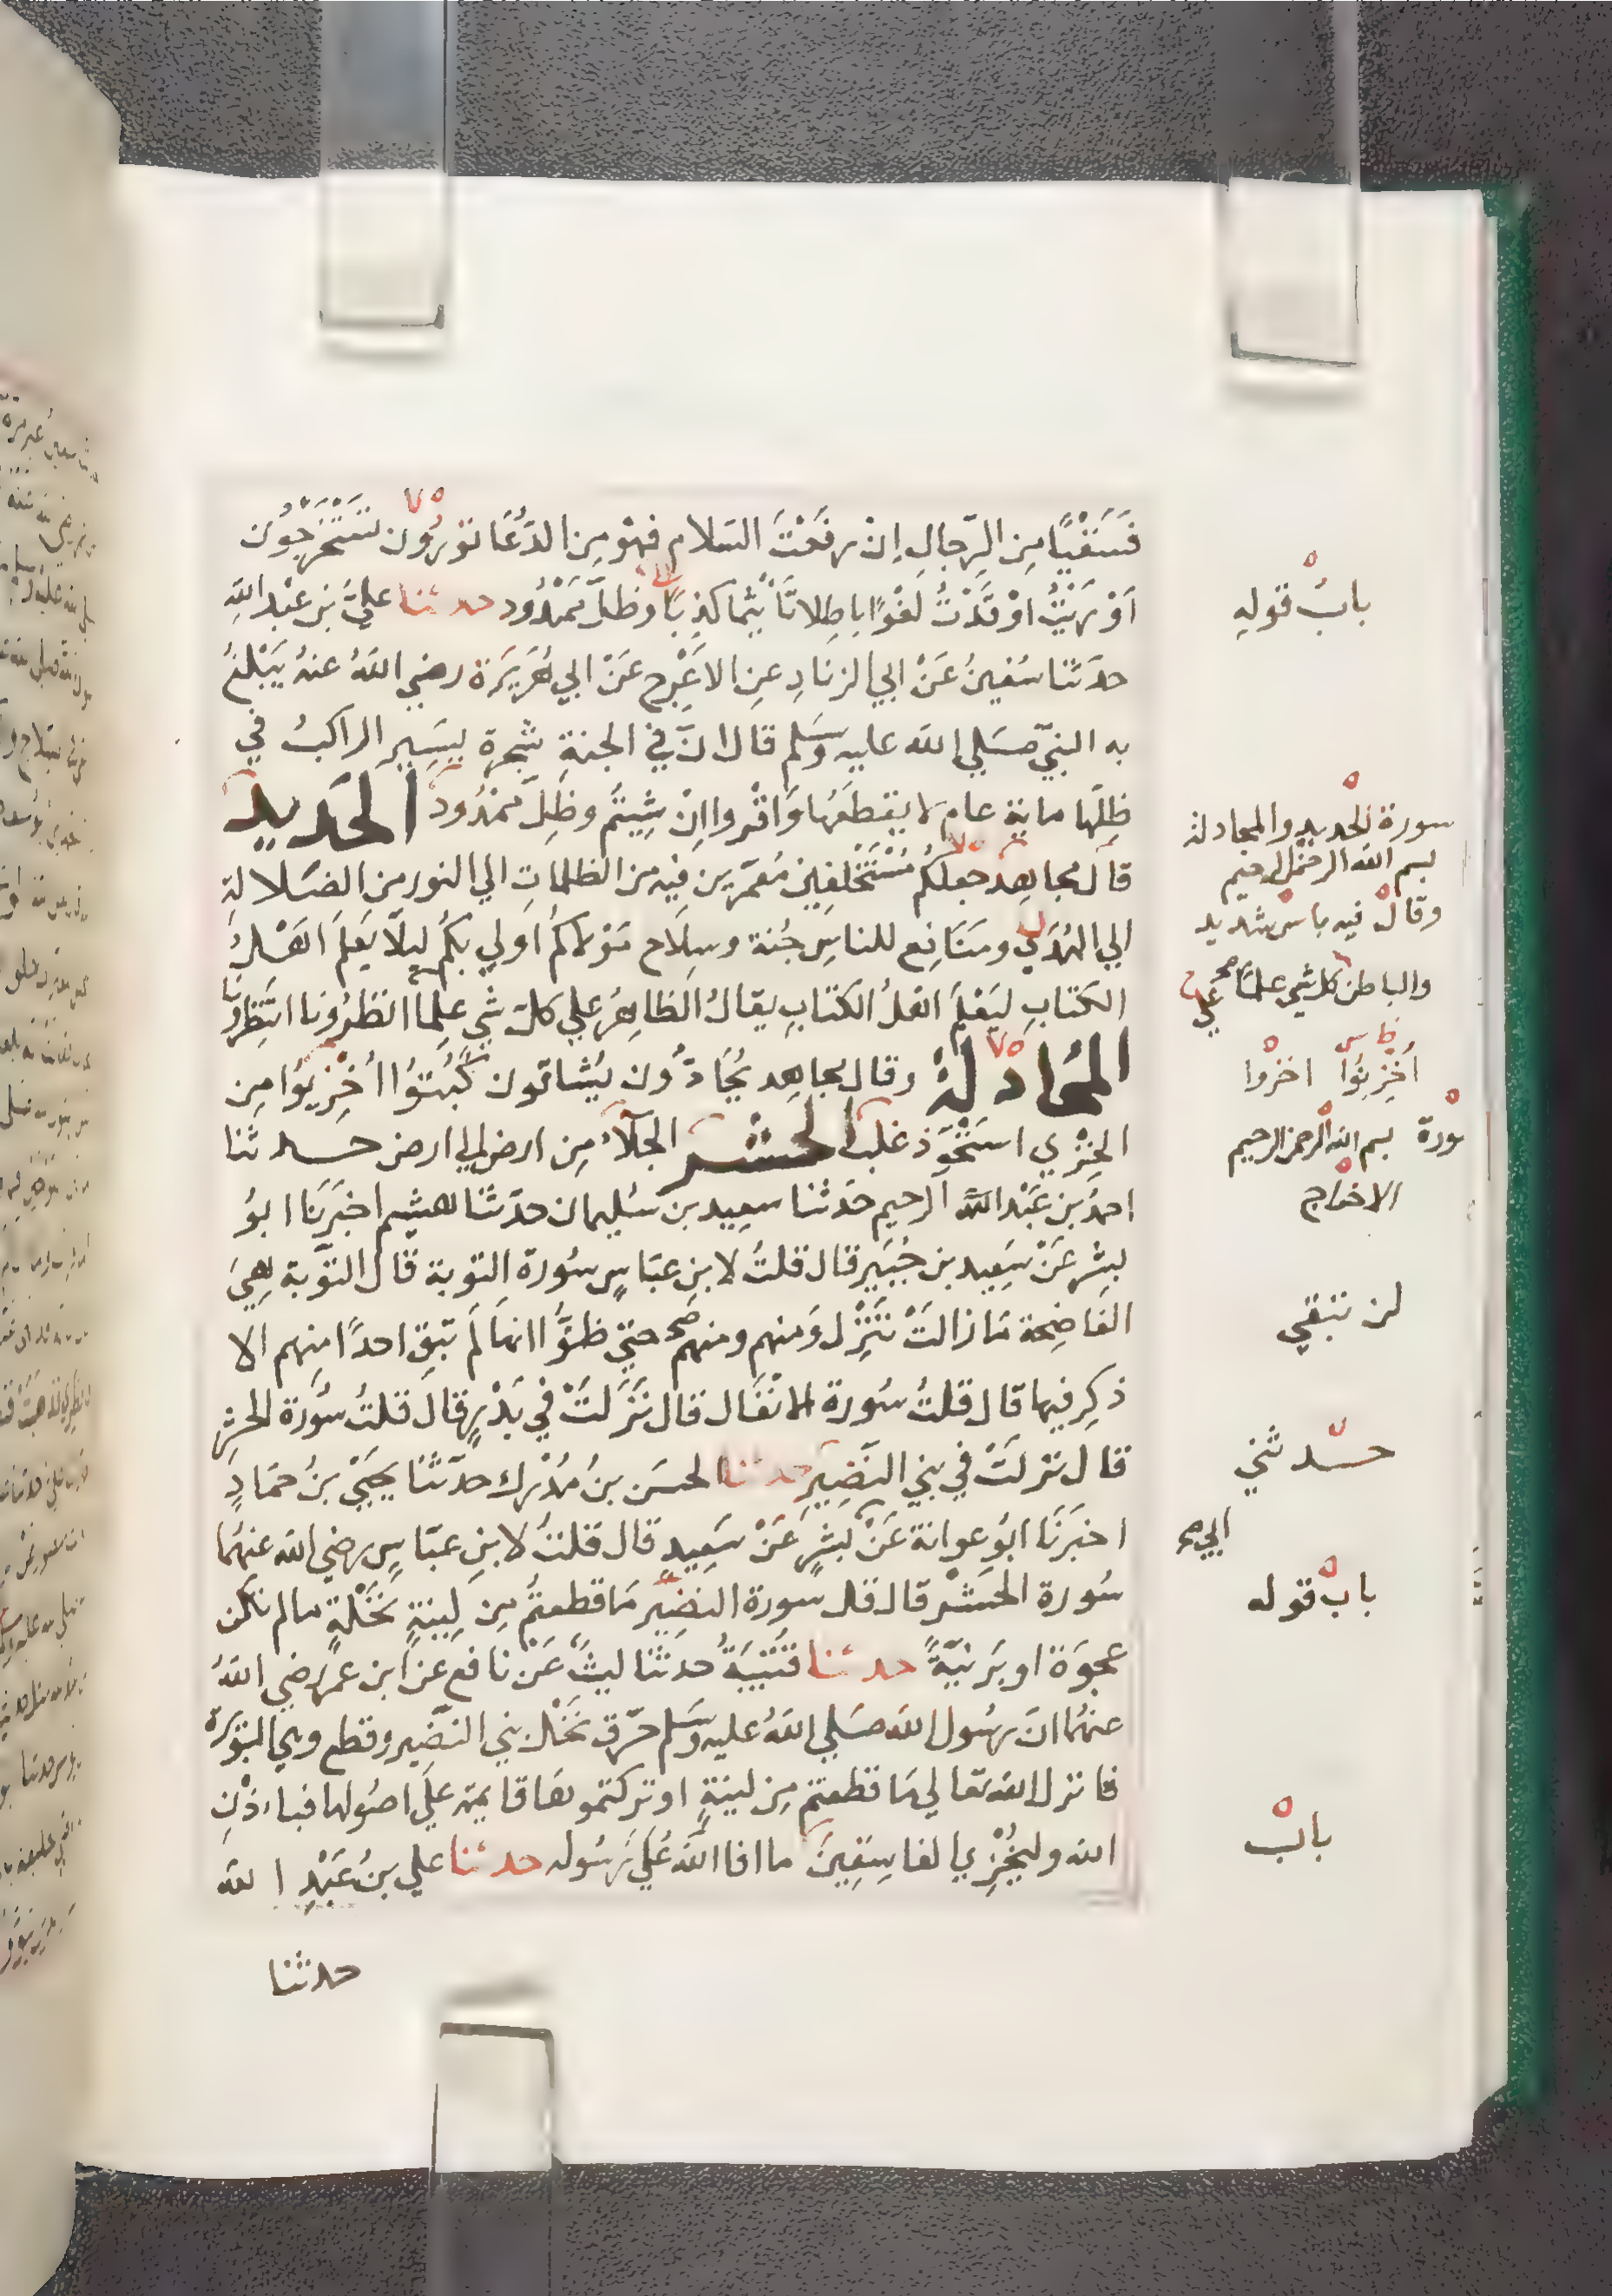 فَسَقْيًا مِن الرِّجالِ اِنْ رفَعْتَ السَلام فهْو مِن الدُّعَا تُوْرُوْن تَسْتَخْرِجُون
اَوْرَيْتُ اوْقَدْتُ لَغْوًا باطِلا تَأثيْما كَذِبًا وظلّ مَمْدُود حدثنا عليُّ بْنُ عَبْدِ اللّهِ
حدَثنا سُفينُ عَنْ ابي الزنَادِ عِنِ الاعْرَج عَنْ ابي هُرَيْرَة رضي اللهُ عنهُ يَبْلُغُ
به النبيّ صَلي الله عليه وسَلم قال انّ في الجنةِ شجرة يسِير الراكبُ في
ظِلِّها ماية عام لا يقطعُها وَاقْروا اِنْ شِيتُم وظِلّ ممدُود الحَديد
قال مجاهد جعلكُم مُسْتَخْلفِين مُعَمَّرين فِيه من الظلماتِ الي النور من الضلالةِ
الي الهُدَي ومنَافِع للناسِ جُنة وسِلَاح مَوْلاكُم اَولي بكُم لِيلّا يَعْلَمَ اَهْلُ
الكتابِ ليَعْلمَ اهلُ الكتابِ يقالُ الظاهِرُ علي كلّ شي عِلما انظرُونا انتظِرُونا
المُجَادلة وقال مجاهِد يُحَادُّون يُشاقّون كُبِتُوْا اُخْزِيُوْا مِن
الخِزْي استَحْوَذ غلَب الحشر الجَلَاء مِن ارضٍ الي ارض حدثنا
احمدُ بن عَبْد الرحيم حَدثنا سعِيد بن سُليمان حدّثنا هشيم اخبَرَنا ابوُ
بشِر عَنْ سَعِيد بن جُبَير قال قلتُ لابن عبّاسٍ سُورة التوبة قال التوبة هِيَ
الفاضِحة مَا زالَتْ تَنْزِل وَمنهم ومنهم صح حتي ظنُّوا انها لَم تبقِ احدًا منهم الا
ذكِر فيها قال قلتُ سُورة الانْفَال قال نَزَلَتْ في بَدْرٍ قال قلتُ سُوْرة الحشِر
قال نزلَتْ في بني النَضِير حدثنا الحسَن بنُ مُدْرك حدّثنا يحيَيْ بنُ حمَادٍ
اخبَرَنَا ابوُ عوانة عَنْ بشِرٍ عَنْ سَعِيدٍ قال قلتُ لابنِ عبّاسٍ رضي الله عنهُما
سُورة الحَشْر قال قل سورة النضِير مَا قطعتُم مِن لِينةٍ نَخْلةٍ مالم تكن
عجوَة او بَرْنيّةً حدثنا قتَيْبَةُ حدثنا ليثٌ عَنْ نافع عن ابن عمر رضي اللهُ
عنهُما انّ رسُول الله صَلي اللهُ عليه وسَلم حَرّق نَخْلَ بني النَّضير وقطع وهي البُوَيْرة
فانزل الله تعَالي مَا قطعتم مِن لينةٍ او تركتموهَا قايمَة علَي اصُولها فباذْن
الله وليُخْزِي الفاسِقِينَ ما افا اللهُ عَلَي رَسُوله حدثنا علي بنُ عَبْدِ الله
حدثنا
بابُ قولِه
سورة الحديد والمجادلة
بسم الله الرحمن الرحيم
وقال فيه باس شديد
والباطن كل شي علمًا صح علي
اُخْزِيُوا اخزوا
سورة بسم الله الرحمن الرحيم
الاخراج
لن تبقي
حدثني
ابي صح
باب قوله
باب